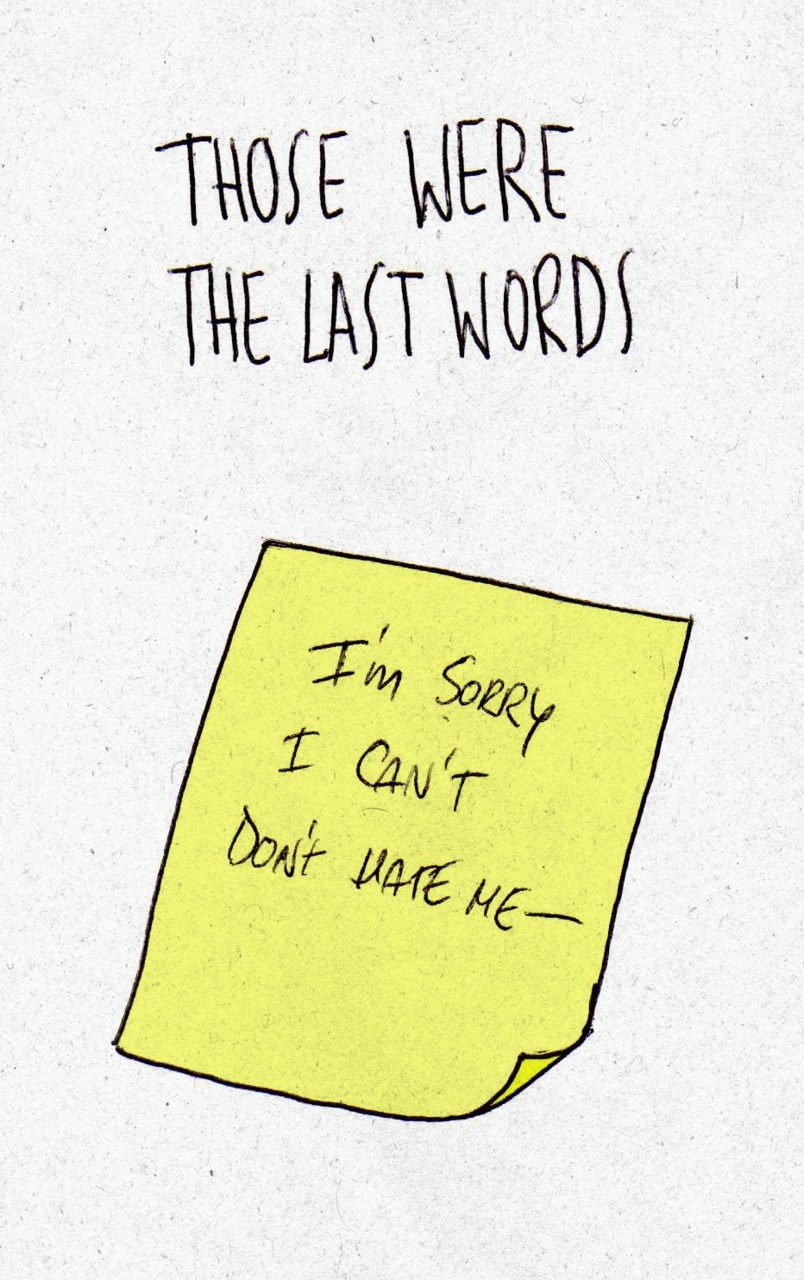 THOSE WERE
THE LAST WORDS
I'm SORRY
I CAN'T
DON'T HATE ME—